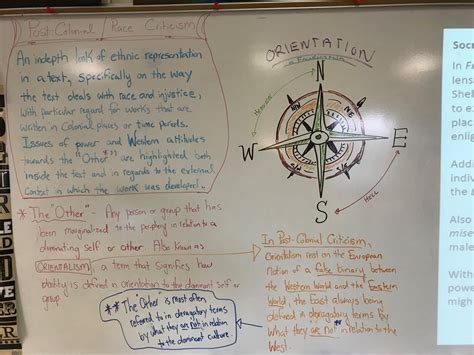 Post-Colonial / Race Criticism
An indepth look of ethnic representation
in a text, specifically on the way
the text deals with race and injustice,
with particular regard for works that are
written in Colonial places or time periods.
Issues of power and Western attitudes
towards the "Other"* are highlighted both
inside the text and in regards to the external
context in which the work was developed.
* The "Other" - Any person or group that has
been marginalized to the periphery in relation to a
dominating self or other. Also known as
ORIENTALISM a term that signifies how
identity is defined in orientation to the dominant self or
group.
** The "Other" is most often
referred to in derogatory terms
by what they are not in relation
to the dominant culture
ORIENTATION
HEAVEN
N
W
E
S
HELL
In Post-Colonial Criticism,
Orientalism rest on the European
notion of a false binary between
the Western World and the Eastern
World, the East always being
defined in derogatory terms by
what they are not** in relation to the
West.
Soc
In Fr
lens
Shel
to e
plac
enlig
Addi
indiv
the
Also
mise
male
With
powe
migh